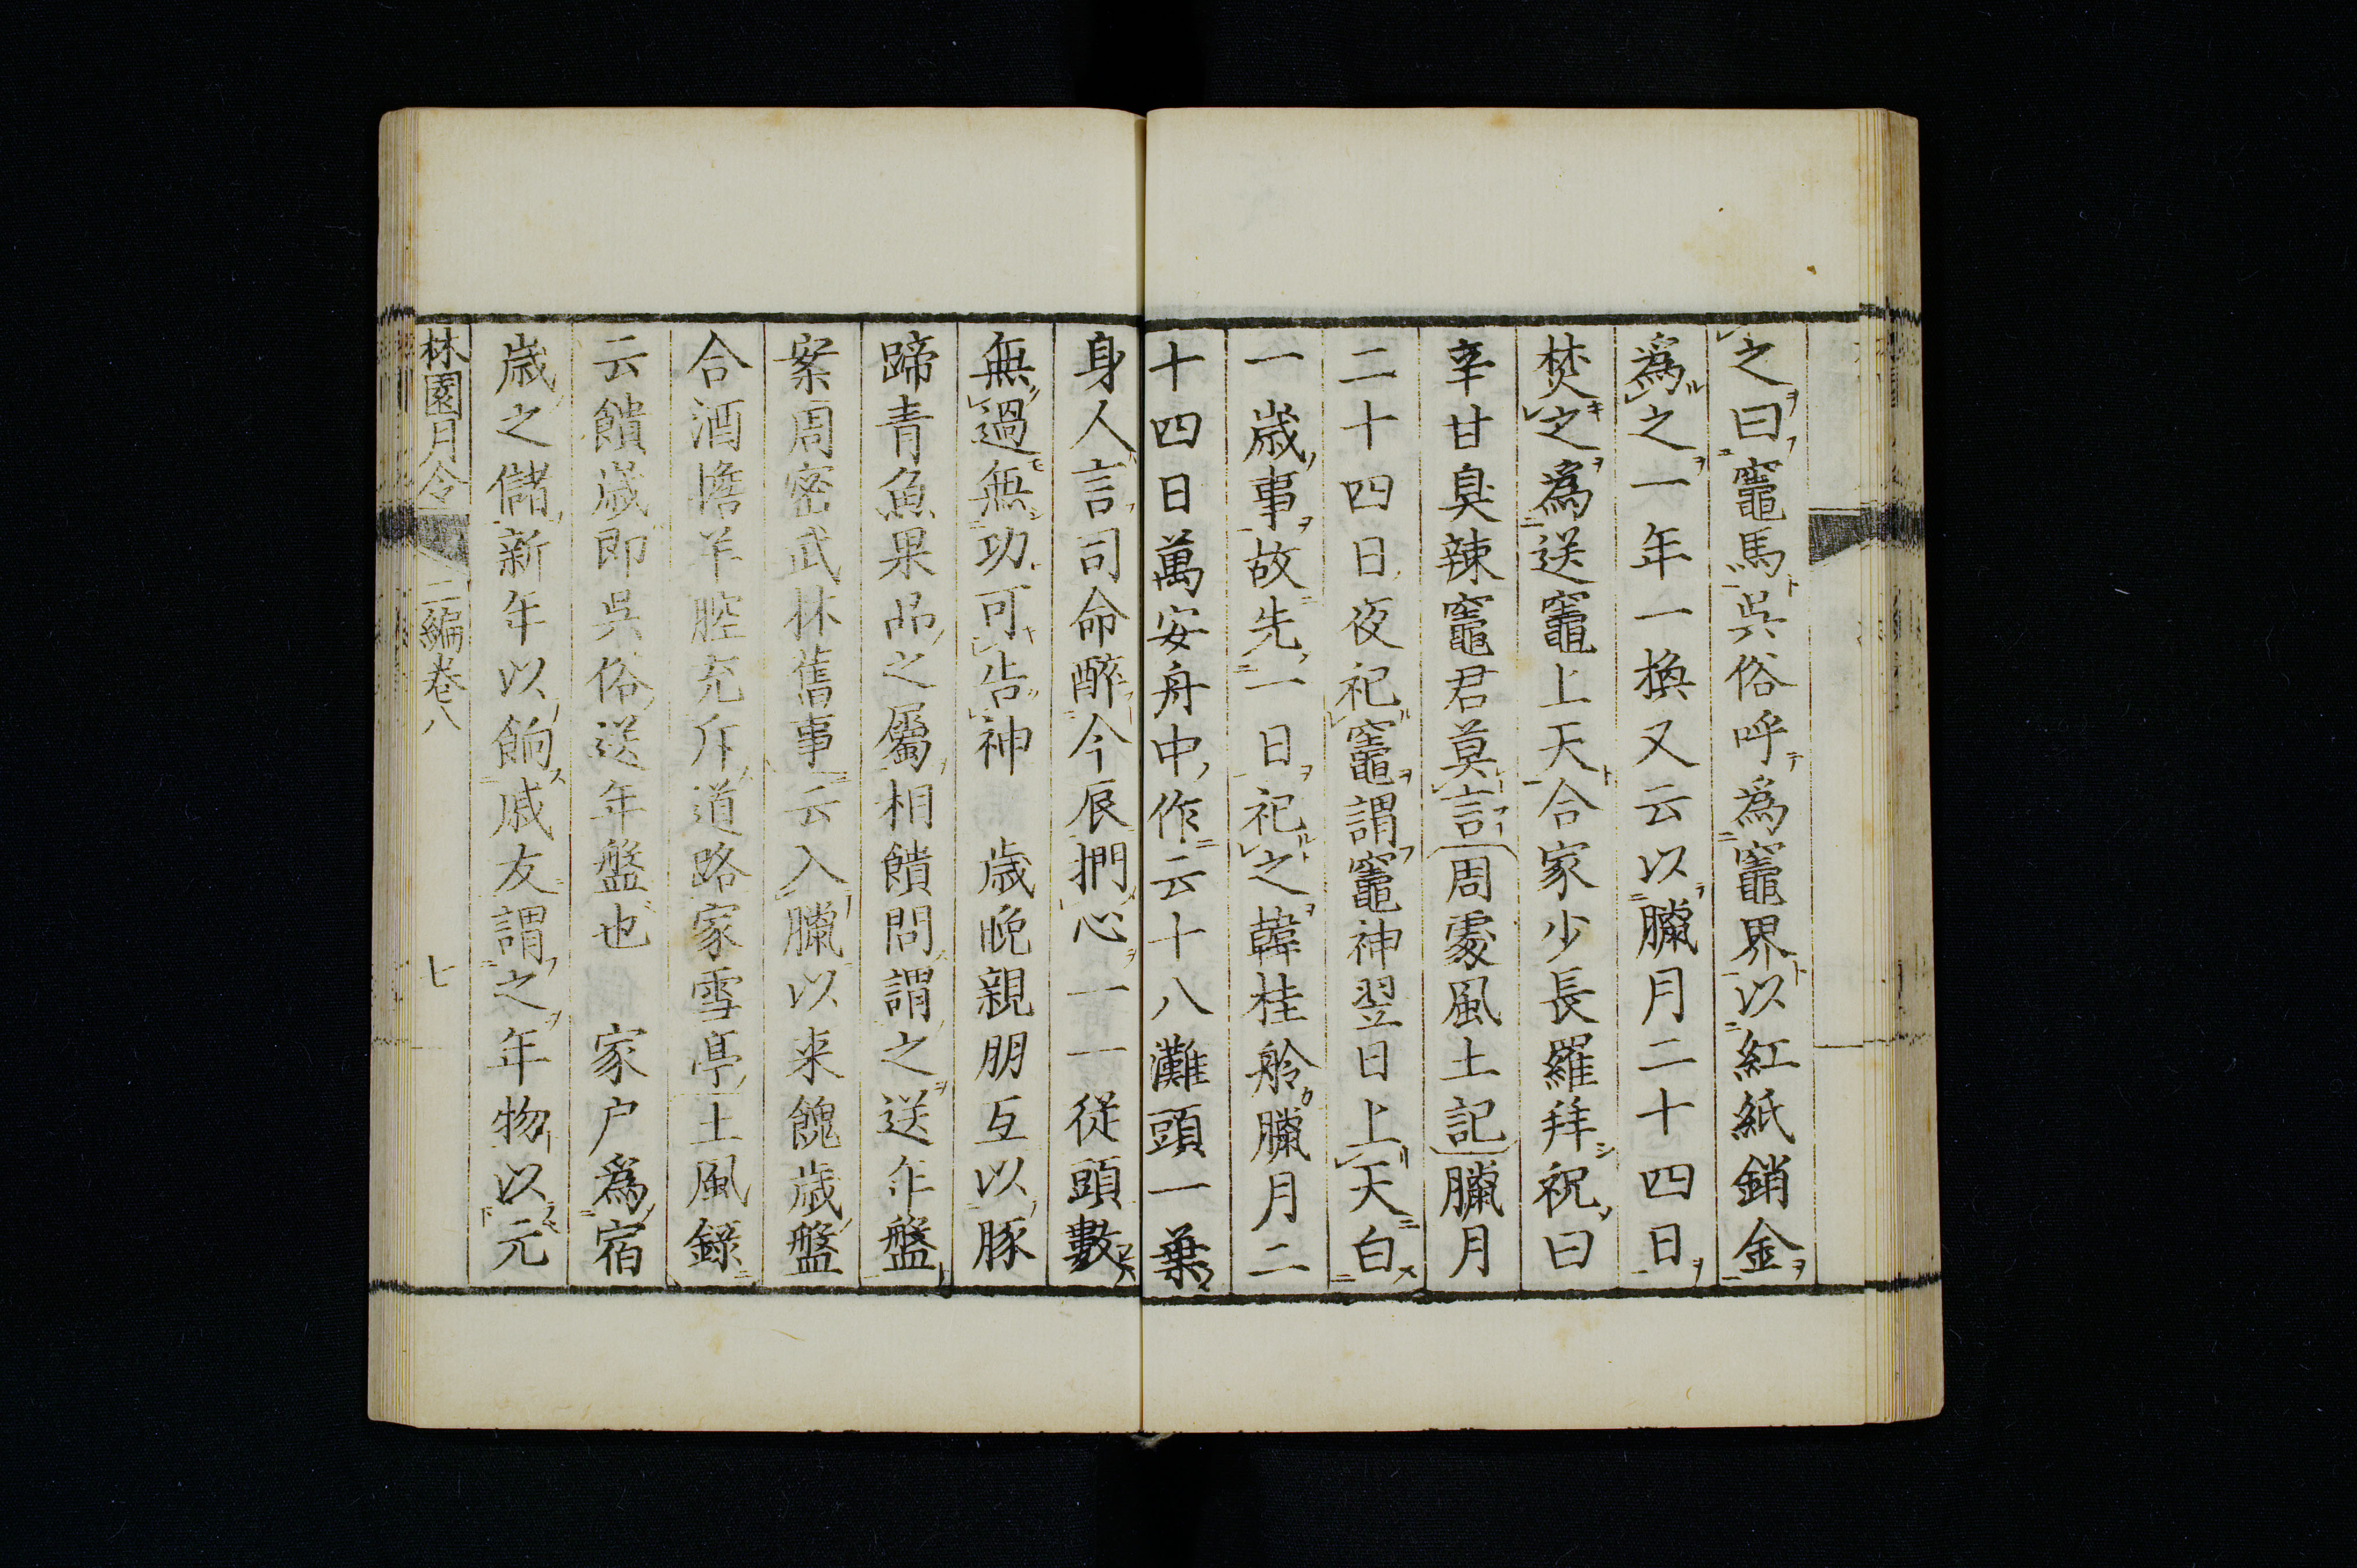 之曰竈馬吳俗呼爲竈界以紅紙銷金
爲之一年一換又云以臘月二十四日
焚之爲送竈上天合家少長羅拜祝曰
辛甘臭辣竈君莫言周處風土記臘月
二十四日夜祀竈謂竈神翌日上天白
一歲事故先一日祀之韓桂舲臘月二
十四日萬安舟中作云十八灘頭一葉
身人言司命醉今辰捫心一一從頭數
無過無功可告神　歲晚親朋互以豚
蹄青魚果品之屬相饋問謂之送年盤
案周密武林舊事云入臘以来餽歲盤
合酒擔羊腔充斥道路家雪亭土風錄
云饋歲即吳俗送年盤也　家户爲宿
歲之儲新年以餉戚友謂之年物以元
林園月令 二編卷八 七